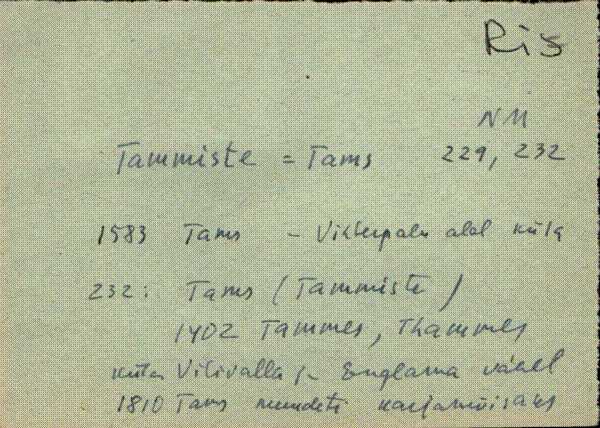 Ris
NM
Tammiste = Tams 229, 232
1583 Tams - Vihterpalu alal küla
232: Tams (Tammiste)
1402 Tammes, Thammes
küla Vilivalla ja Englama vahel
1810 Tams muudeti karjamõisaks